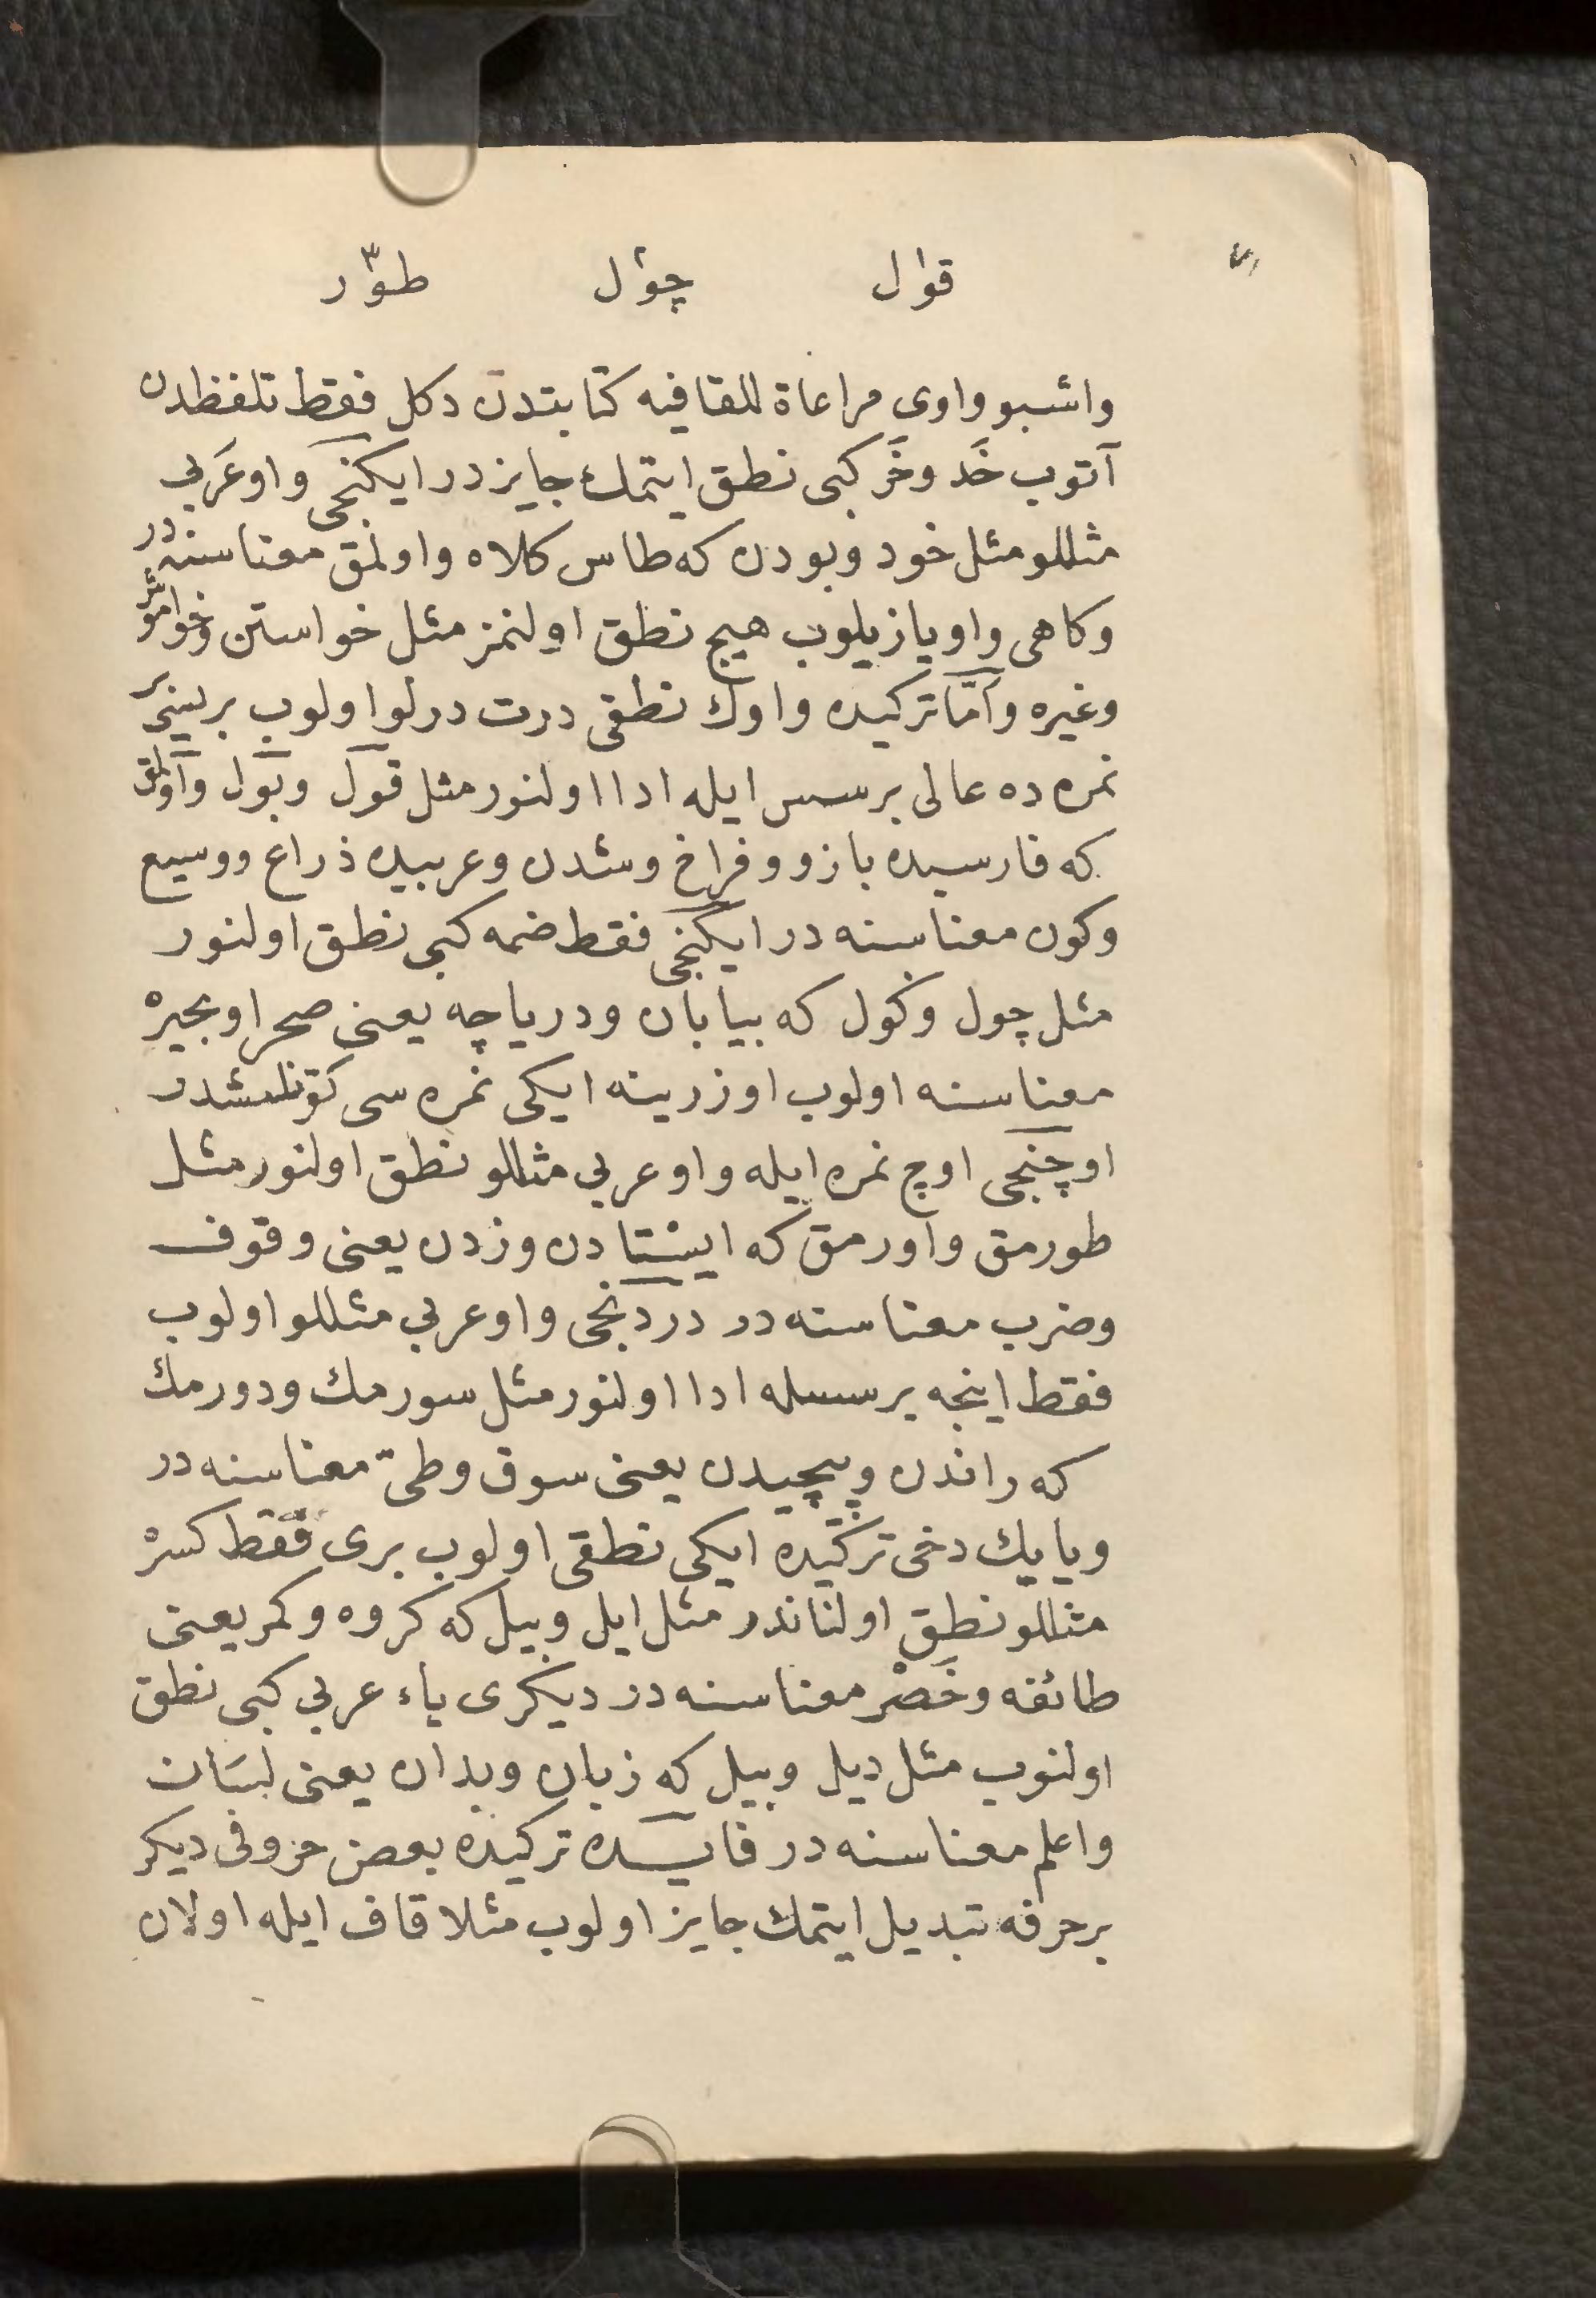 قو١ل چو٢ل طو٣ر
واشبو واوی مراعاة للقافیه کتابتدن دکل فقط تلفظدن
آتوب خَد وخَر کبی نطق ایتمك جایزدر ایکنجی واو عَربی
مثللو مثل خود وبودن که طاس کلاه واولمق معناسنه در
وکاهی واو یازیلوب هیچ نطق اولنمز مثل خواستن وخواهر
وغیره وامّا ترکیده واوك نطقی درت درلو اولوب برینی بر
نمره ده عالی بر سس ایله ادا اولنور مثل قول وبول واولمق
که فارسیده بازو وفراخ وشدن وعربیده ذراع ووسیع
وکون معناسنه در ایکنجی فقط ضمه کبی نطق اولنور
مثل چول وکول که بیابان ودریاچه یعنی صحرا وبحیره
معناسنه اولوب اوزرینه ایکی نمره سی قونلمشدر
اوچنجی اوچ نمره ایله واو عربی مثللو نطق اولنور مثل
طورمق واورمق که ایستادن وزدن یعنی وقوف
وضرب معناسنه در دردنجی واو عربی مثللو اولوب
فقط اینجه بر سسله ادا اولنور مثل سورمك ودورمك
که راندن وپیچیدن یعنی سوق وطیّ معناسنه در
ویاییك دخی ترکیده ایکی نطقی اولوب بری فقط کسره
مثللو نطق اولناندر مثل ایل وبیل که کروه وکمر یعنی
طائفه وخَصْر معناسنه در دیکری یاء عربی کبی نطق
اولنوب مثل دیل وبیل که زبان وبدان یعنی لسان
واعلم معناسنه در فایده ترکیده بعض حروفی دیکر
بر حرفه تبدیل ایتمك جایز اولوب مثلا قاف ایله اولان